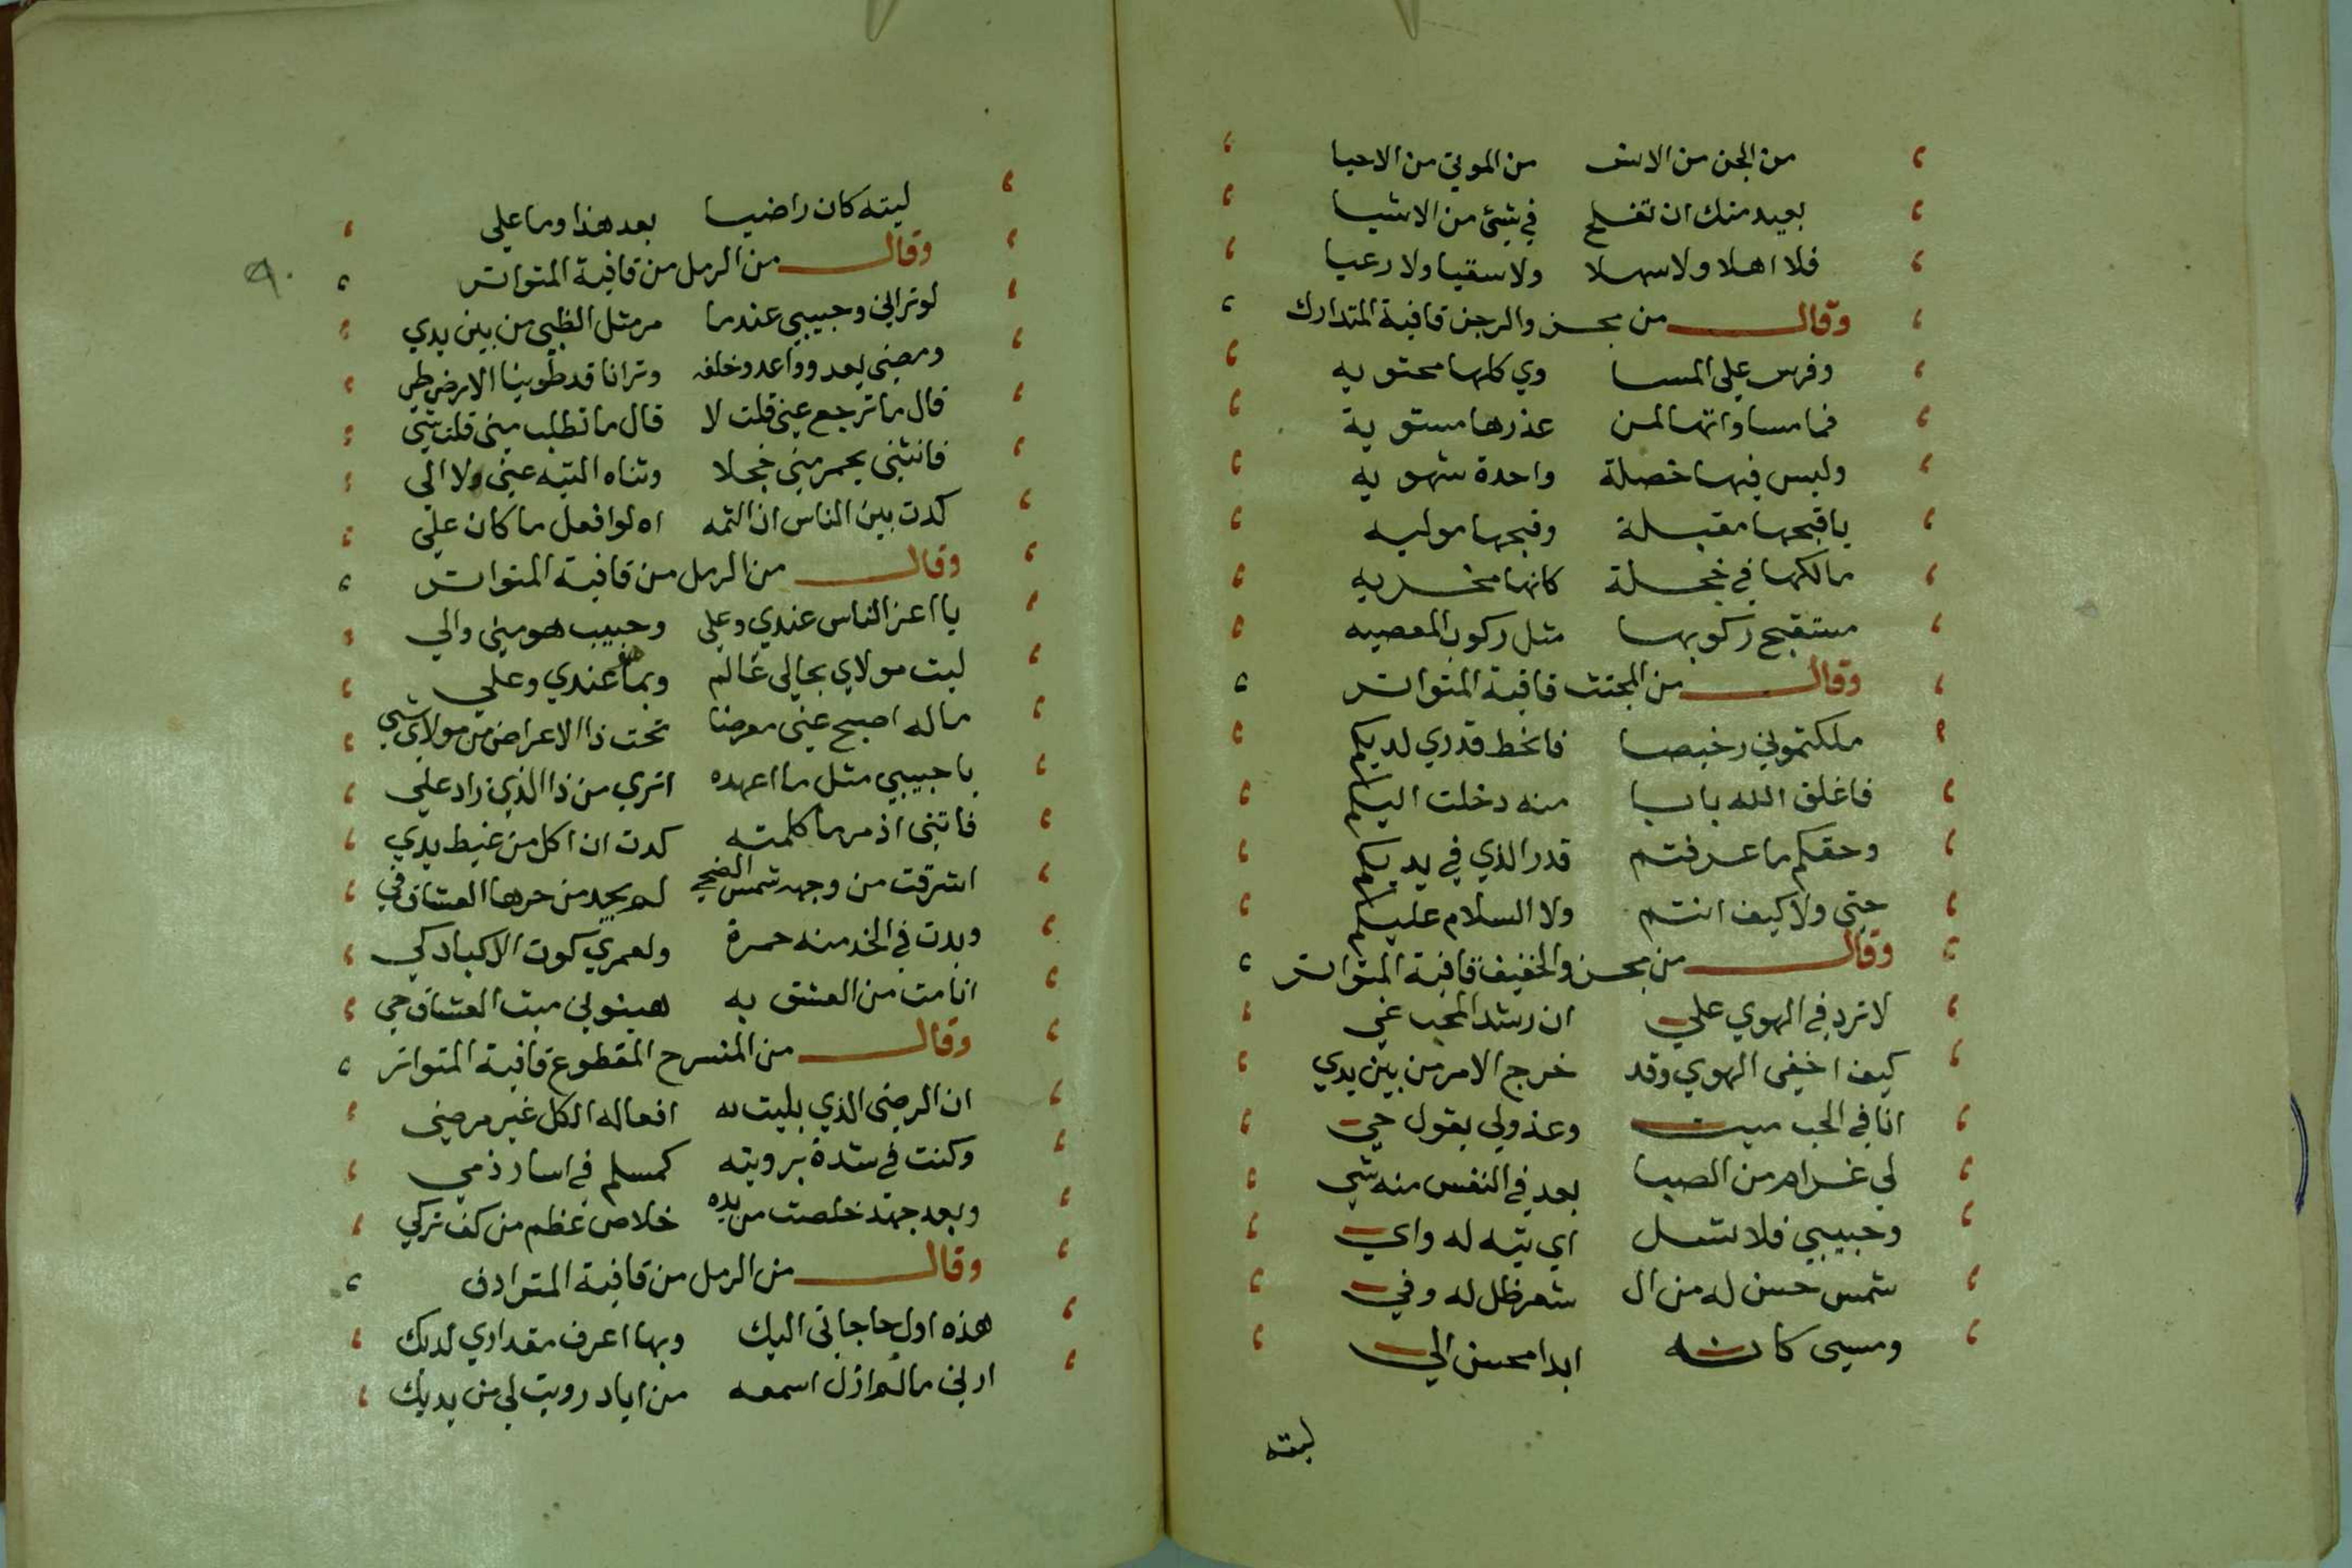 من الجن من الانس من الموتي من الاحيا
بعيد منك ان تفلح في شئ من الاشيا
فلا اهلا ولا سهلا ولا سقيا ولا رعيا
وقال من مجزو الرجز قافية المتدارك
وفرس علي المسا وي كلها محتويه
فما مساواتها لمن عذرها مستوية
وليس فيها خصلة واحدة شهويه
يا قبحها مقبلة وقبحها موليه
مالكها في خجلة كانها مخزيه
مستقبح ركوبها مثل ركوب المعصيه
وقال من المجتث قافية المتواتر
ملكتموني رخيصا فانحط قدري لديكم
فاغلق الله بابا منه دخلت اليكم
وحقكم ما عرفتم قدر الذي في يديكم
حتي ولا كيف انتم ولا السلام عليكم
وقال من مجزو الخفيف قافية المتواتر
لا تزد في الهوي علي ان رشد المحب غي
كيف اخفي الهوي وقد خرج الامر من بين يدي
انا في الحب ميت وعذولي يقول حي
لي غرام من الصبا بعد في النفس منه شي
وحبيبي فلا تسل اي تيه له واي
شمس حسن له من ال شعر ظل له وفي
ومسي كانه ابدا محسن الي
ليته
ليته كان راضيا بعد هذا وما علي
وقال من الرمل من قافية المتواتر
لو تراني وحبيبي عندما مر مثل الظبي من بين يدي
ومضي يعدو واعدو خلفه وترانا قد طوينا الارض طي
قال ما ترجع عني قلت لا قال ما تطلب مني قلت شي
فانثني يحمر مني خجلا وثناه التيه عني ولا الي
كدت بين الناس ان الثمه اه لو افعل ما كان علي
وقال من الرمل من قافية المتواتر
يا اعز الناس عندي وعلي وحبيب هو مني والي
ليت مولاي بحالي عالم وبما عندي وعلي
ماله اصبح عني معرضا تحت ذا الاعراض من مولاي شي
يا حبيبي مثل ما اعهده اتري من ذا الذي زاد علي
فاتني اذ مر ما كلمته كدت ان اكل من غيظ يدي
اشرقت من وجهه شمس الضحي لم يجد من حرها العشاق في
وبدت في الخد منه حمرة ولعمري كوت الاكباد كي
انا مت من العشق به هينوني ميت العشاق حي
وقال من المنسرح المقطوع قافية المتواتر
ان الرضي الذي بليت به افعاله الكل غير مرضي
وكنت في شدة برويته كمسلم في اسار ذمي
وبعد جهد خلصت من يده خلاص عظم من كف تركي
وقال من الرمل من قافية المترادف
هذه اول حاجاتي اليك وبها اعرف مقداري لديك
ارني ما لم ازل اسمعه من اياد رويت لي من يديك